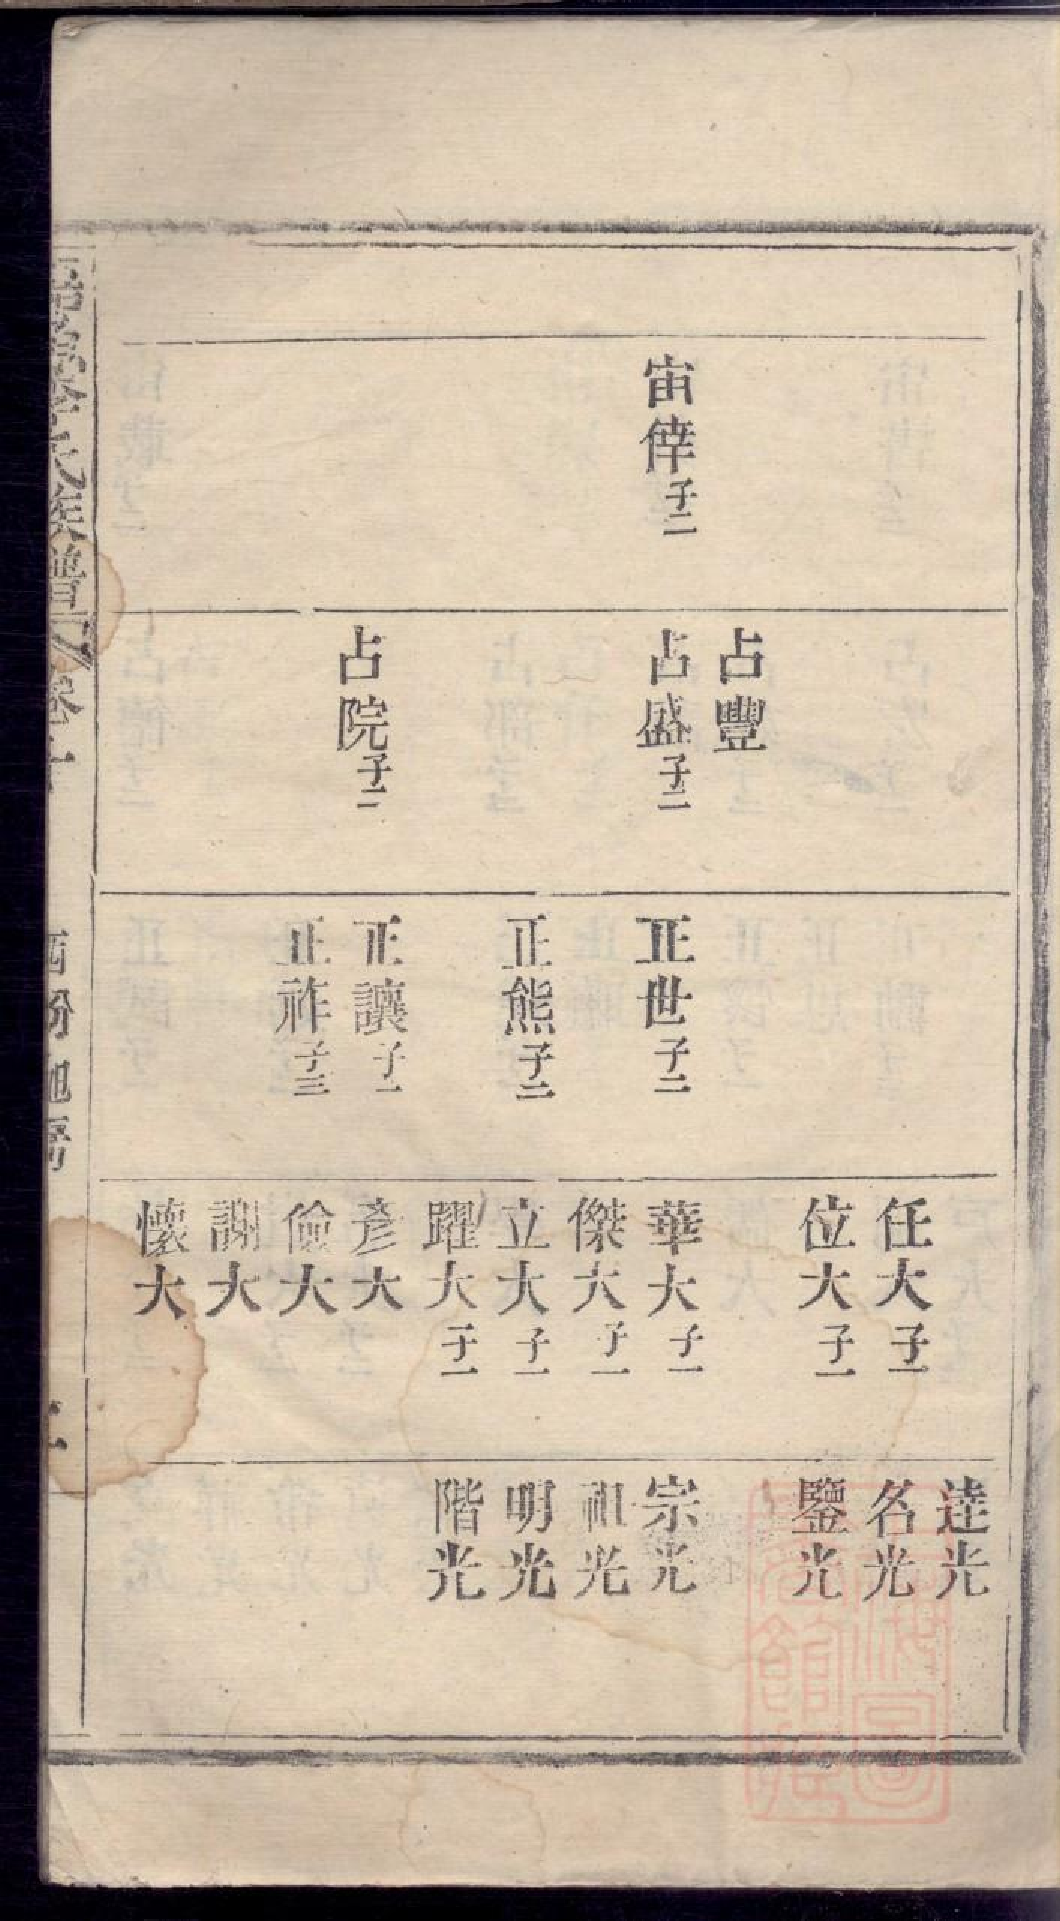 宙倖子二
占豐
占盛子二
占院子二
正世子二
正熊子二
正讓子一
正祚子三
任大子一
位大子一
華大子一
傑大子一
立大子一
躍大子一
彥大
儉大
謝大
懷大
逵光
名光
鑒光
宗光
祖光
明光
階光
氏族譜
卷十